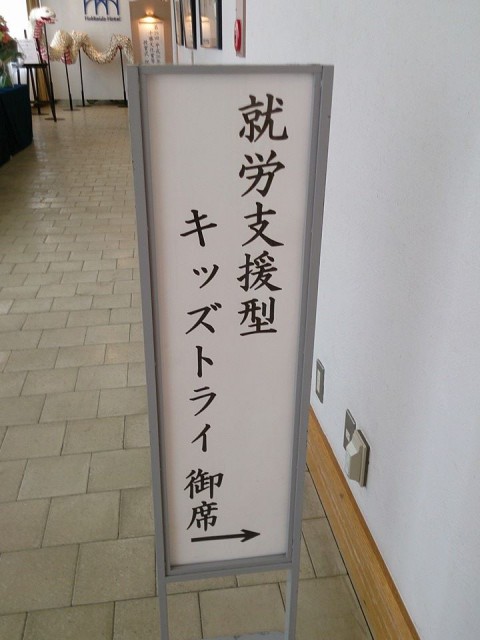 就労支援型
キッズトライ 御席
Hokkaido Hotel